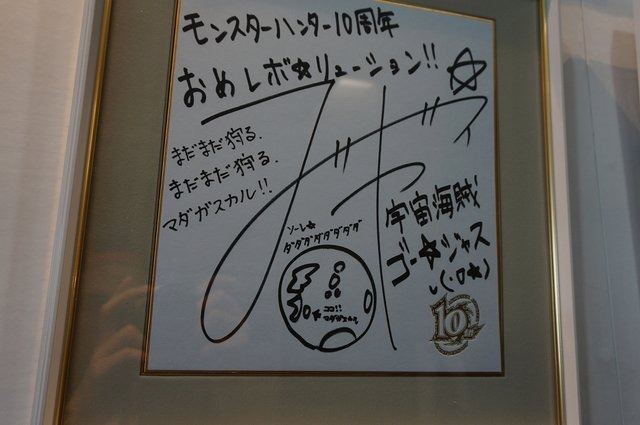 モンスターハンター10周年
おめレボ☆リューション!!
まだまだ狩る.
まだまだ狩る.
マダガスカル!!
ソーレ☆
ダダダダダダダダ
ココ!!
マダガスカル
宇宙海賊!
ゴー☆ジャス
10